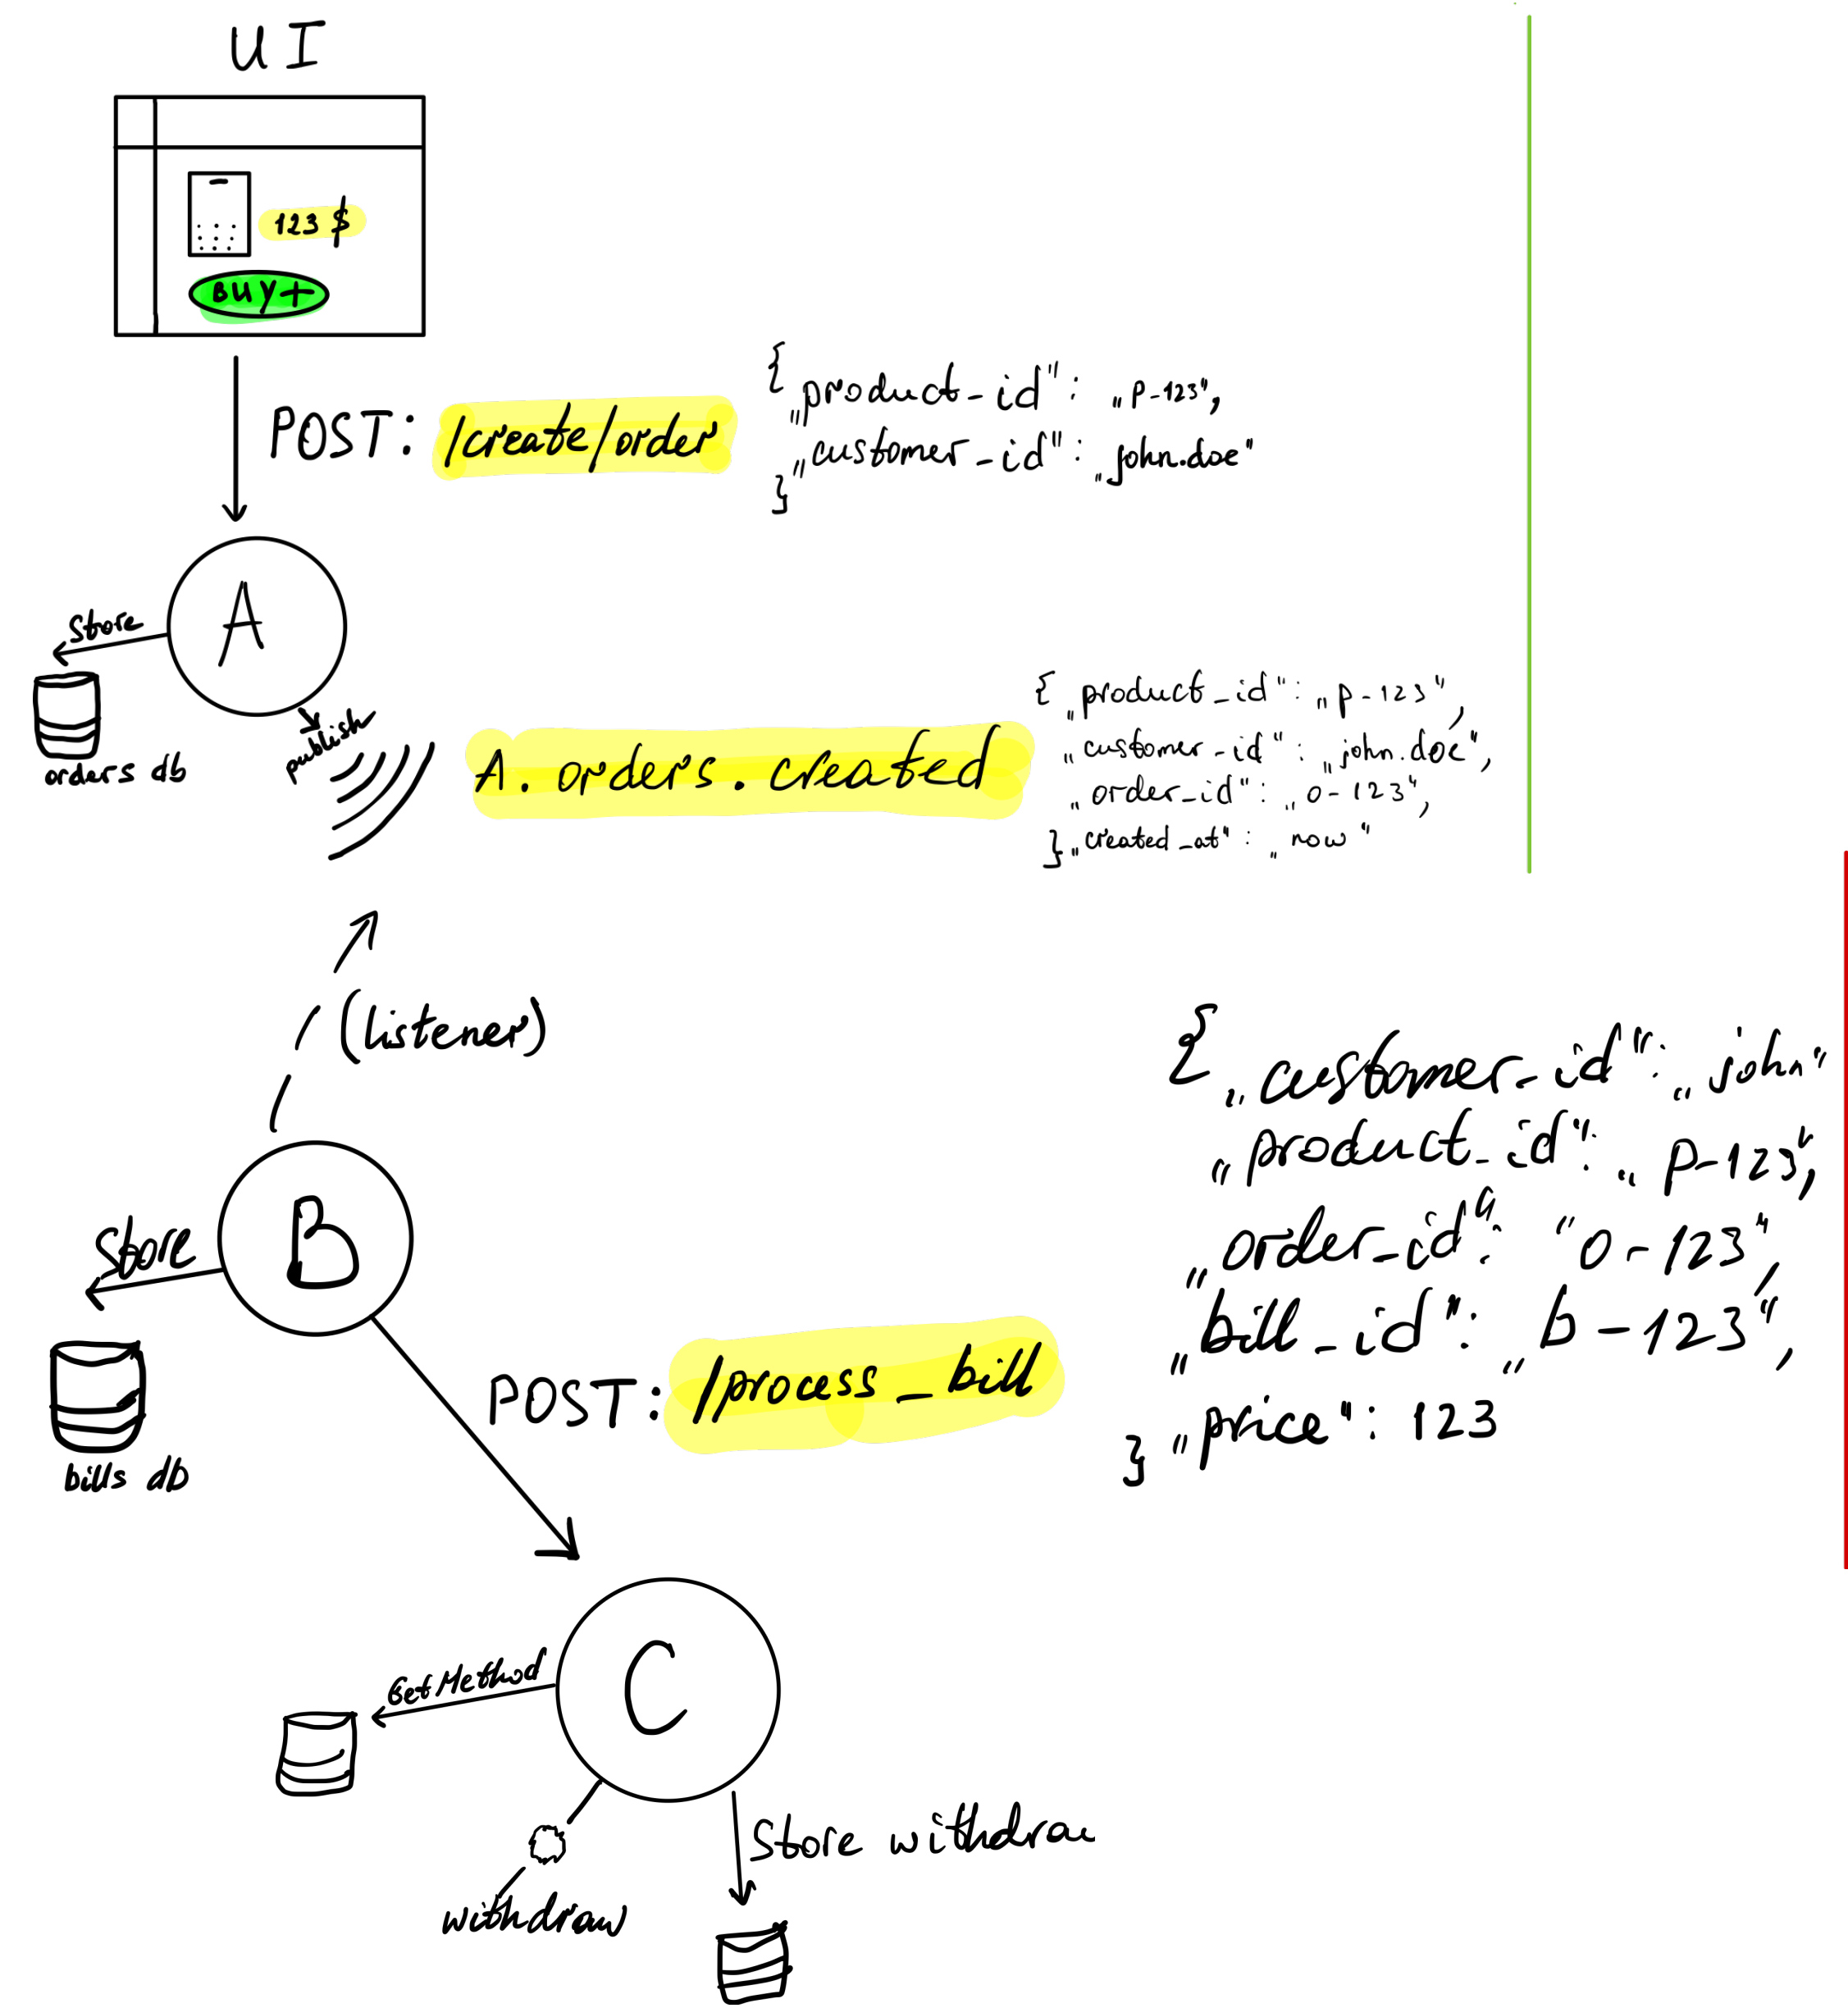 UI
123 $
BUY+
POST: /create/order
{
„product_id": „p-123",
„customer_id": „john.doe"
}
A
Store
orders db
publish
A.orders.created
{ „product_id": „p-123",
„customer_id": „john.doe",
„order_id": „o-123",
} „created_at": „now"
(listener)
B
Store
bills db
POST: /process_bill
{
„customer_id": „john"
„product_id": „p-123",
„order_id": "o-123",
„bill_id": „b-123",
} „price": 123
C
GetMethod
withdraw
Store withdraw